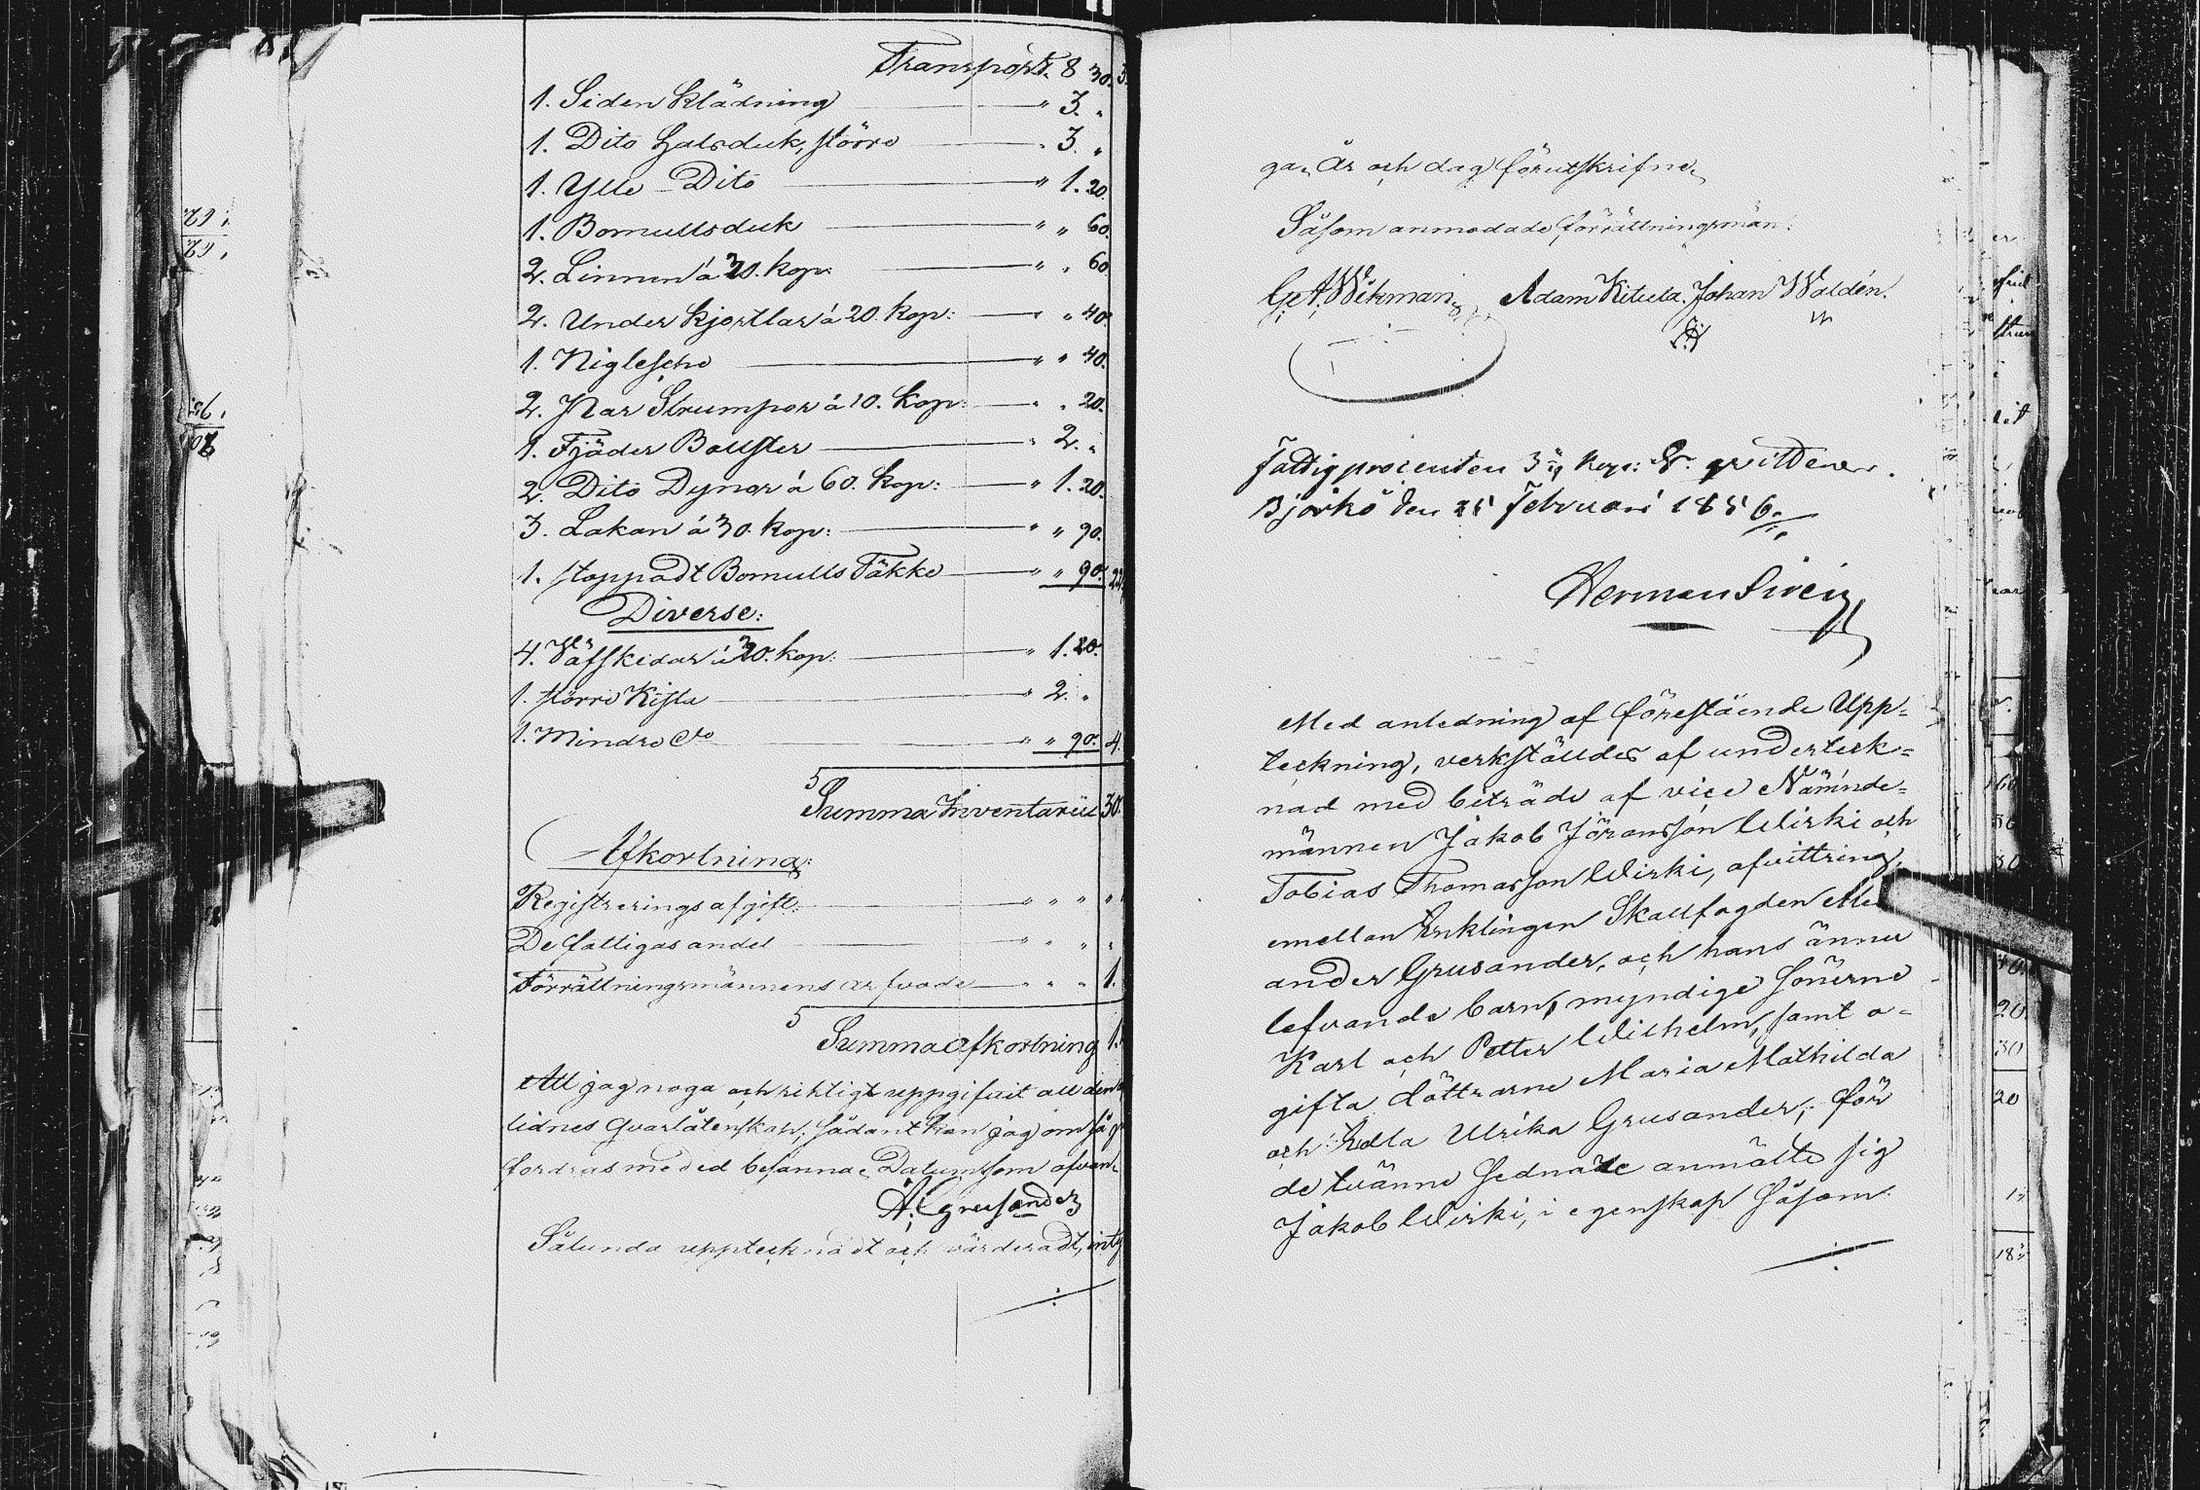 Transport. 8 30. 3
1. Siden Klädning " 3. "
1. Dito Halsduk, större " 3. "
1. Ylle Dito " 1. 20
1. Bomullsduk " " 60.
2. Linnen á 30. kop: " " 60
2. Under Kjortlar á 20. Kop: " " 40.
1. Niglesche " " 40.
2. Par Strumpor á 10. Kop: " " 20.
1. Fjäder Bollster " 2. "
2. Dito Dynor á 60. Kop: " 1. 20.
3. Lakan á 30. Kop: " " 90.
1. stoppadt Bomulls Täkke " " 90. 22
Diverse:
4. Väfskidar á 30. kop: " 1. 20.
1. större Kista " 2. "
1. Mindre dto " " 90. 4.
Summa Inventarii 30.
Afkortning:
Registrerings afgift: " " " "
De fattigas andel " " " "
Förrättningsmännens arfvode " " " 1.
Summa Afkortning 1.
Att jag noga och riktigt uppgifvit all den
lidnes qvarlåtenskap, sådant kan jag om så
fordras med ed besanna. Datum som ofvan.
A. Grusander
Sålunda upptecknadt och värderadt, inty
ga, År och dag förutskrifne,
Såsom anmodade förrättningsmän:
G. A. Wikman, Adam Kitula. Johan Waldén.
Fattigprocenten 3 kop: S. qvitteras.
Björkö den 25 Februari 1856.
Herman Sirén
Med anledning af förestående Upp=
teckning, verkställdes af underteck=
nad med biträde af vice Nämnde=
männen Jakob Jöransson Wirki och
Tobias Thomasson Wirki, afvittring,
emellan Enklingen Skallfogden
ander Grusander, och hans ännu
lefvande barn, myndige sönerne
Karl och Petter Wilhelm, samt o-
gifta döttrarne Maria Mathilda
och Edla Ulrika Grusander, för
de tvänne sednare anmälte sig
Jakob Wirki, i egenskap såsom